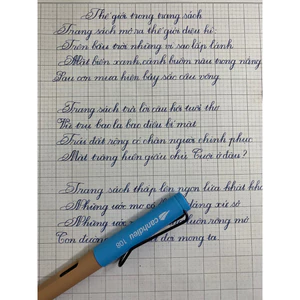 Thế giới trong trang sách
Trang sách mở ra thế giới diệu kì
Trên bầu trời những vì sao lấp lánh
Mặt biển xanh, cánh buồm nâu trong nắng
Sau cơn mưa hiện bảy sắc cầu vồng.
Trang sách trả lời câu hỏi tuổi thơ
Vũ trụ bao la bao điều bí mật
Trái đất rộng có chân người chinh phục
Mặt trăng hiền giấu chú Cuội ở đâu?
Trang sách thắp lên ngọn lửa khát kha
Những ước mơ có xứ sở
Những ước rộng mở
Con đường đợi mong ta.
candleu 106